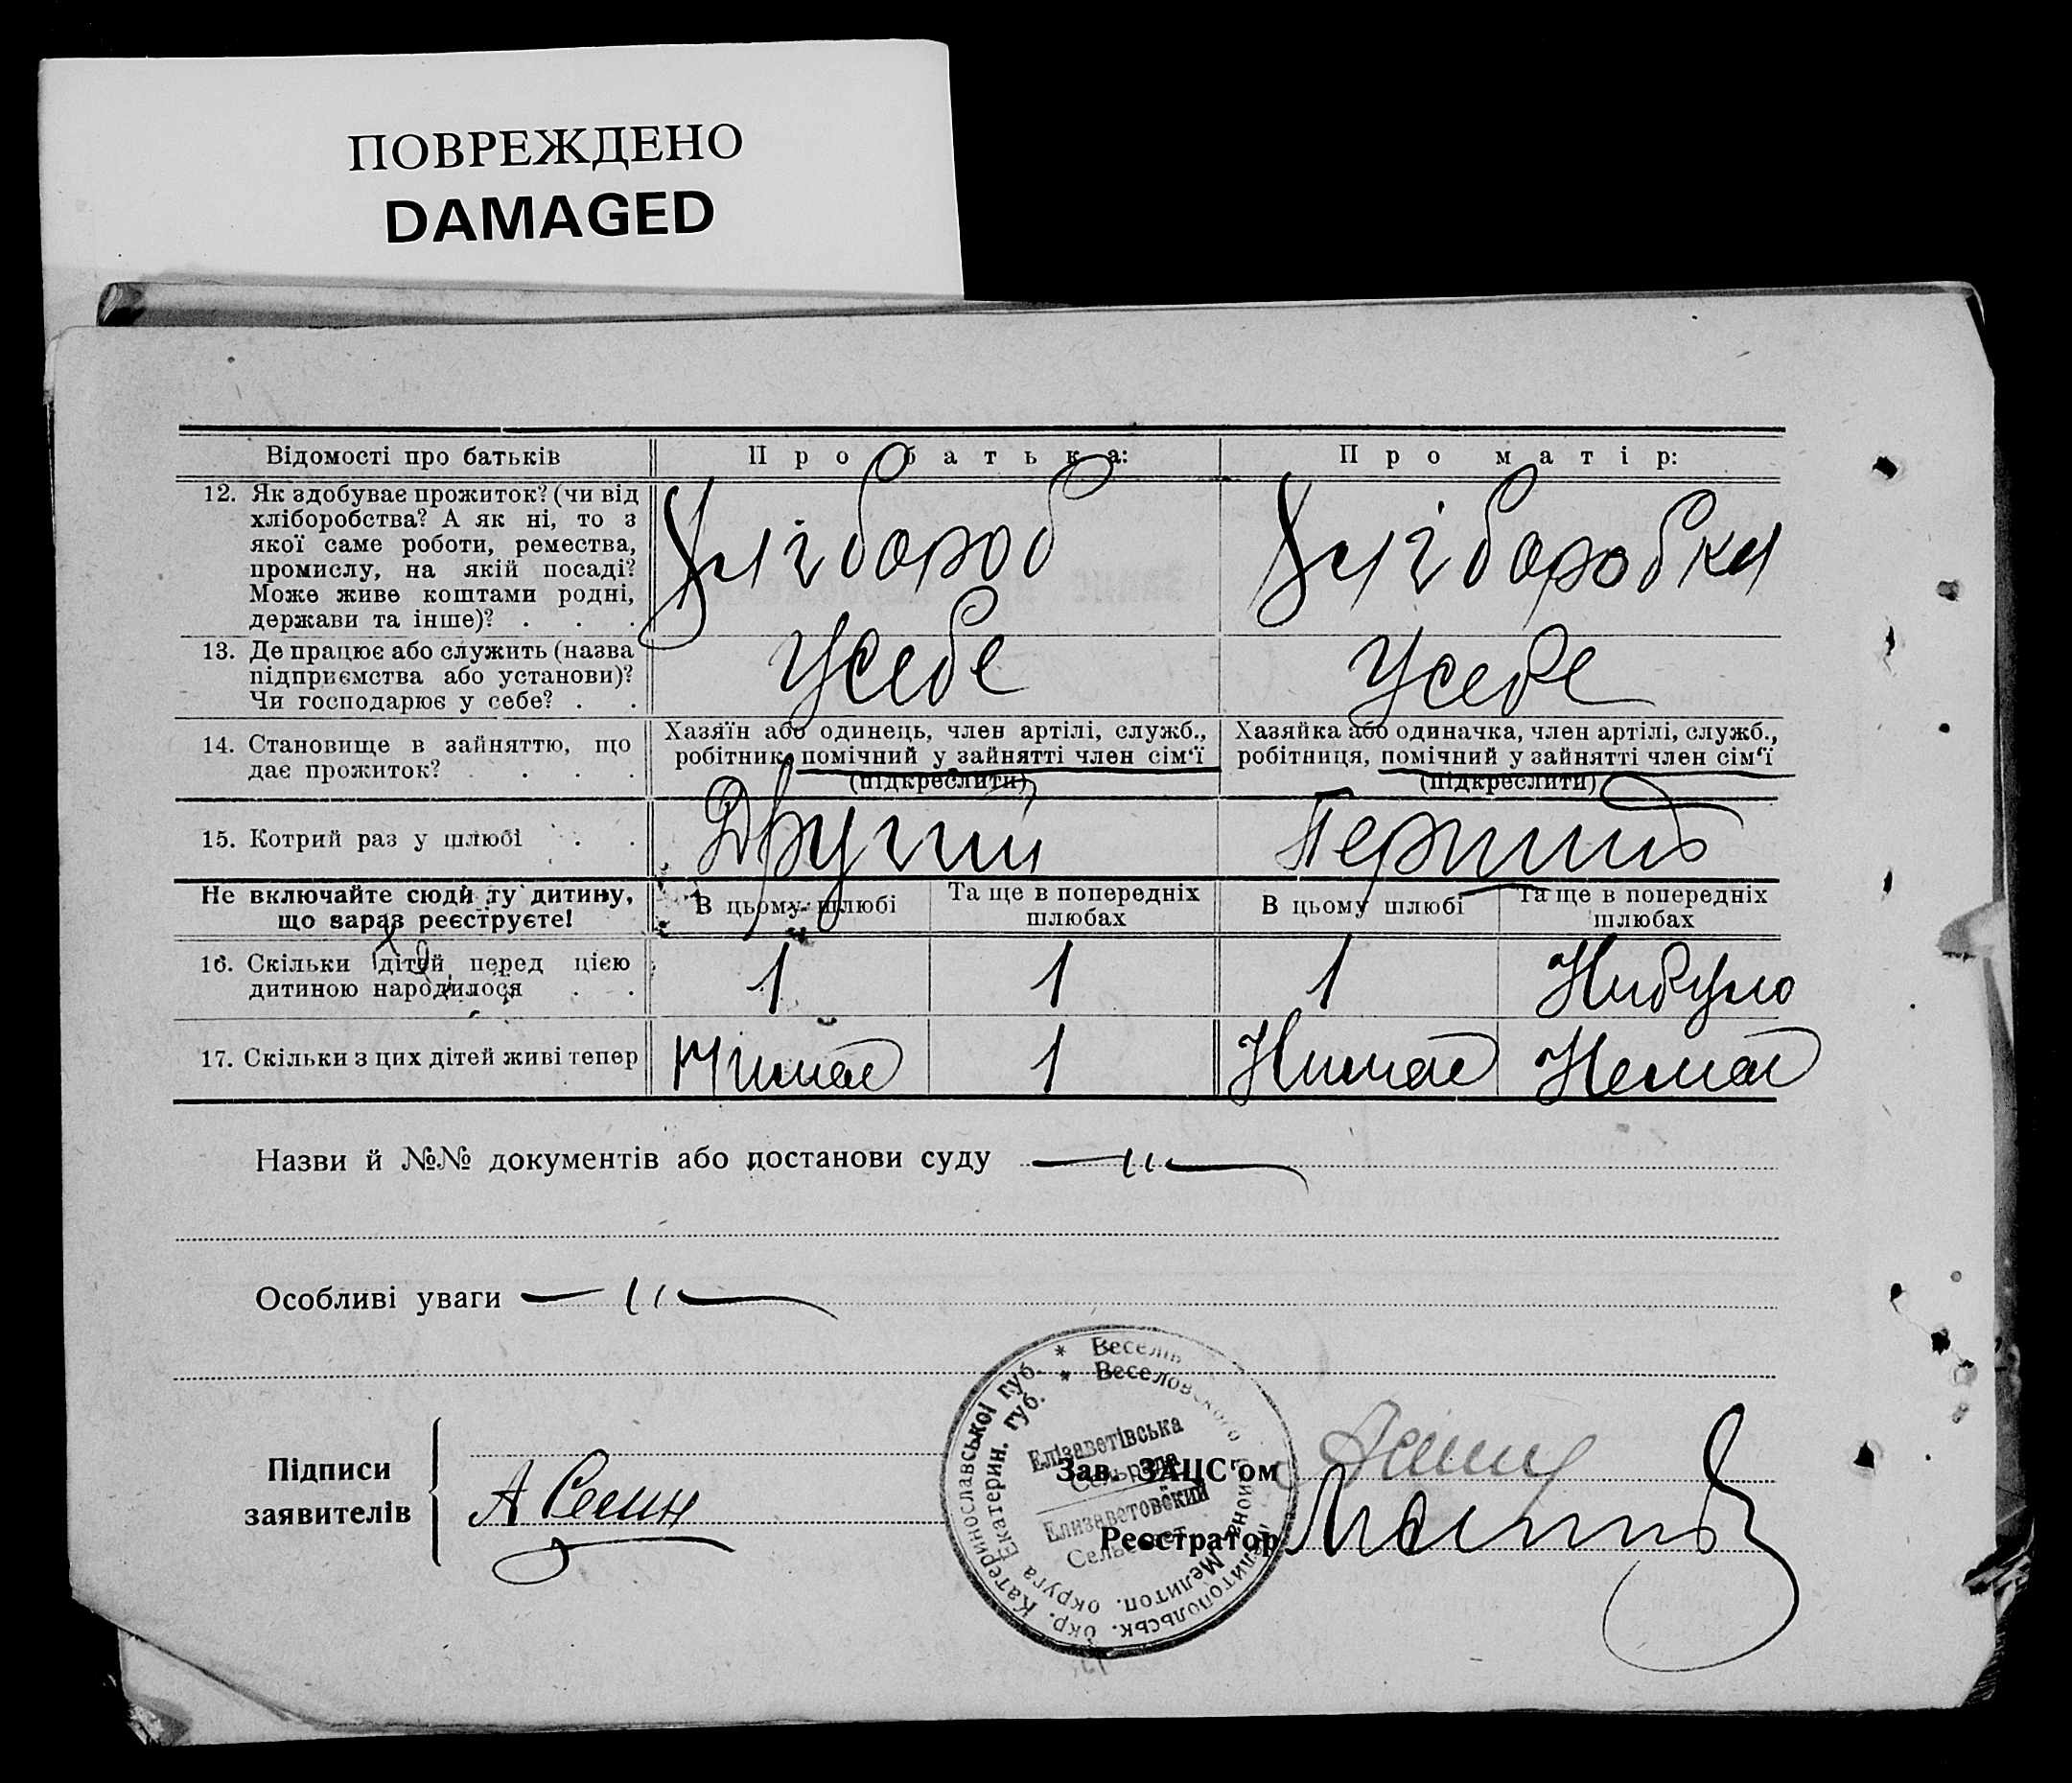 ПОВРЕЖДЕНО
DAMAGED
Відомості про батьків
Про батька:
Про матір:
12. Як здобуває прожиток? (чи від
хліборобства? А як ні, то з
якої саме роботи, ремества,
промислу, на якій посаді?
Може живе коштами родні,
держави та інше)? . . .
Хлібороб
Хліборобка
13. Де працює або служить (назва
підприємства або установи)?
Чи господарює у себе? . .
Усебе
Усебе
14. Становище в зайняттю, що
дає прожиток? . . . .
Хазяїн або одинець, член артілі, служб.,
робітник, помічний у зайнятті член сім'ї
(підкреслити)
Хазяйка або одиначка, член артілі, служб.,
робітниця, помічний у зайнятті член сім'ї
(підкреслити)
15. Котрий раз у шлюбі . .
Другий
Перший
Не включайте сюди ту дитину,
що зараз реєструєте!
В цьому шлюбі
Та ще в попередніх
шлюбах
В цьому шлюбі
Та ще в попередніх
шлюбах
16. Скільки дітей перед цією
дитиною народилося . .
1
1
1
Нибуло
17. Скільки з цих дітей живі тепер
Нимае
1
Нимае
Немае
Назви й №№ документів або постанови суду — „ —
Особливі уваги — „ —
Підписи
заявителів
А
Зав. ЗАЦС'ом
Реєстратор
Мелітопольськ. окр. Катеринославської губ. * Веселів
Мелитоп. округа Екатерин. губ. * Веселовского
Елізаветівська
Сельрада
Елизаветовский